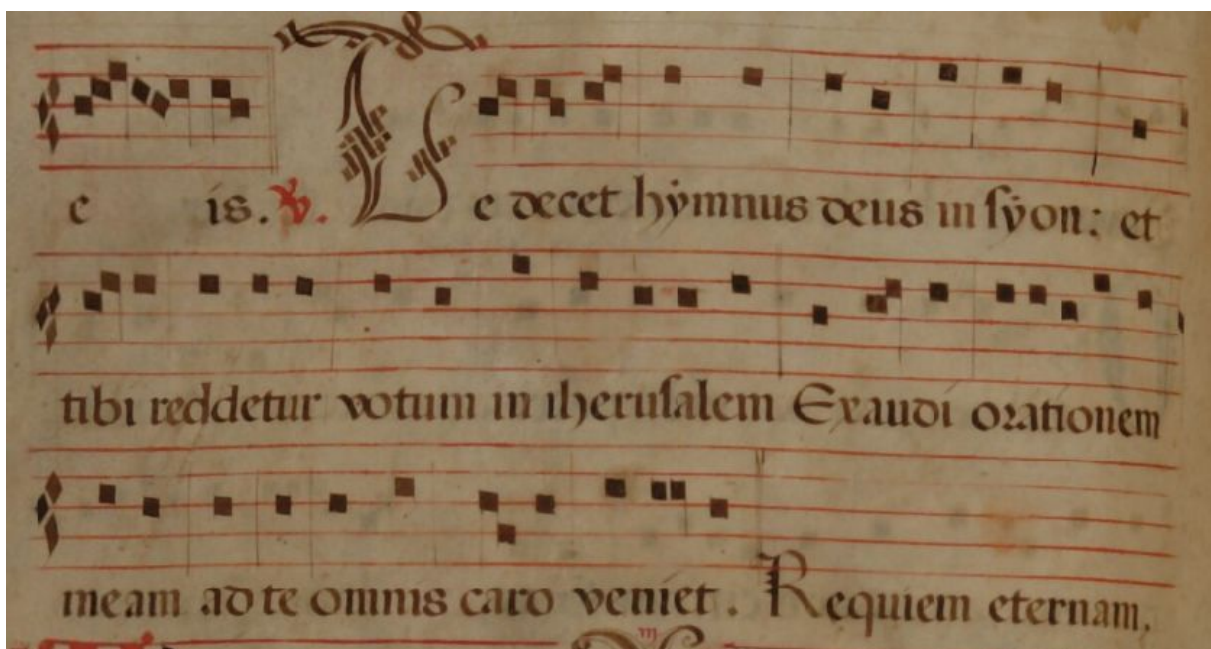 e is. V. Te decet hẏmnus deus in sẏon: et
tibi reddetur votum in iherusalem Exaudi orationem
meam ad te omnis caro veniet. Requiem eternam.
m